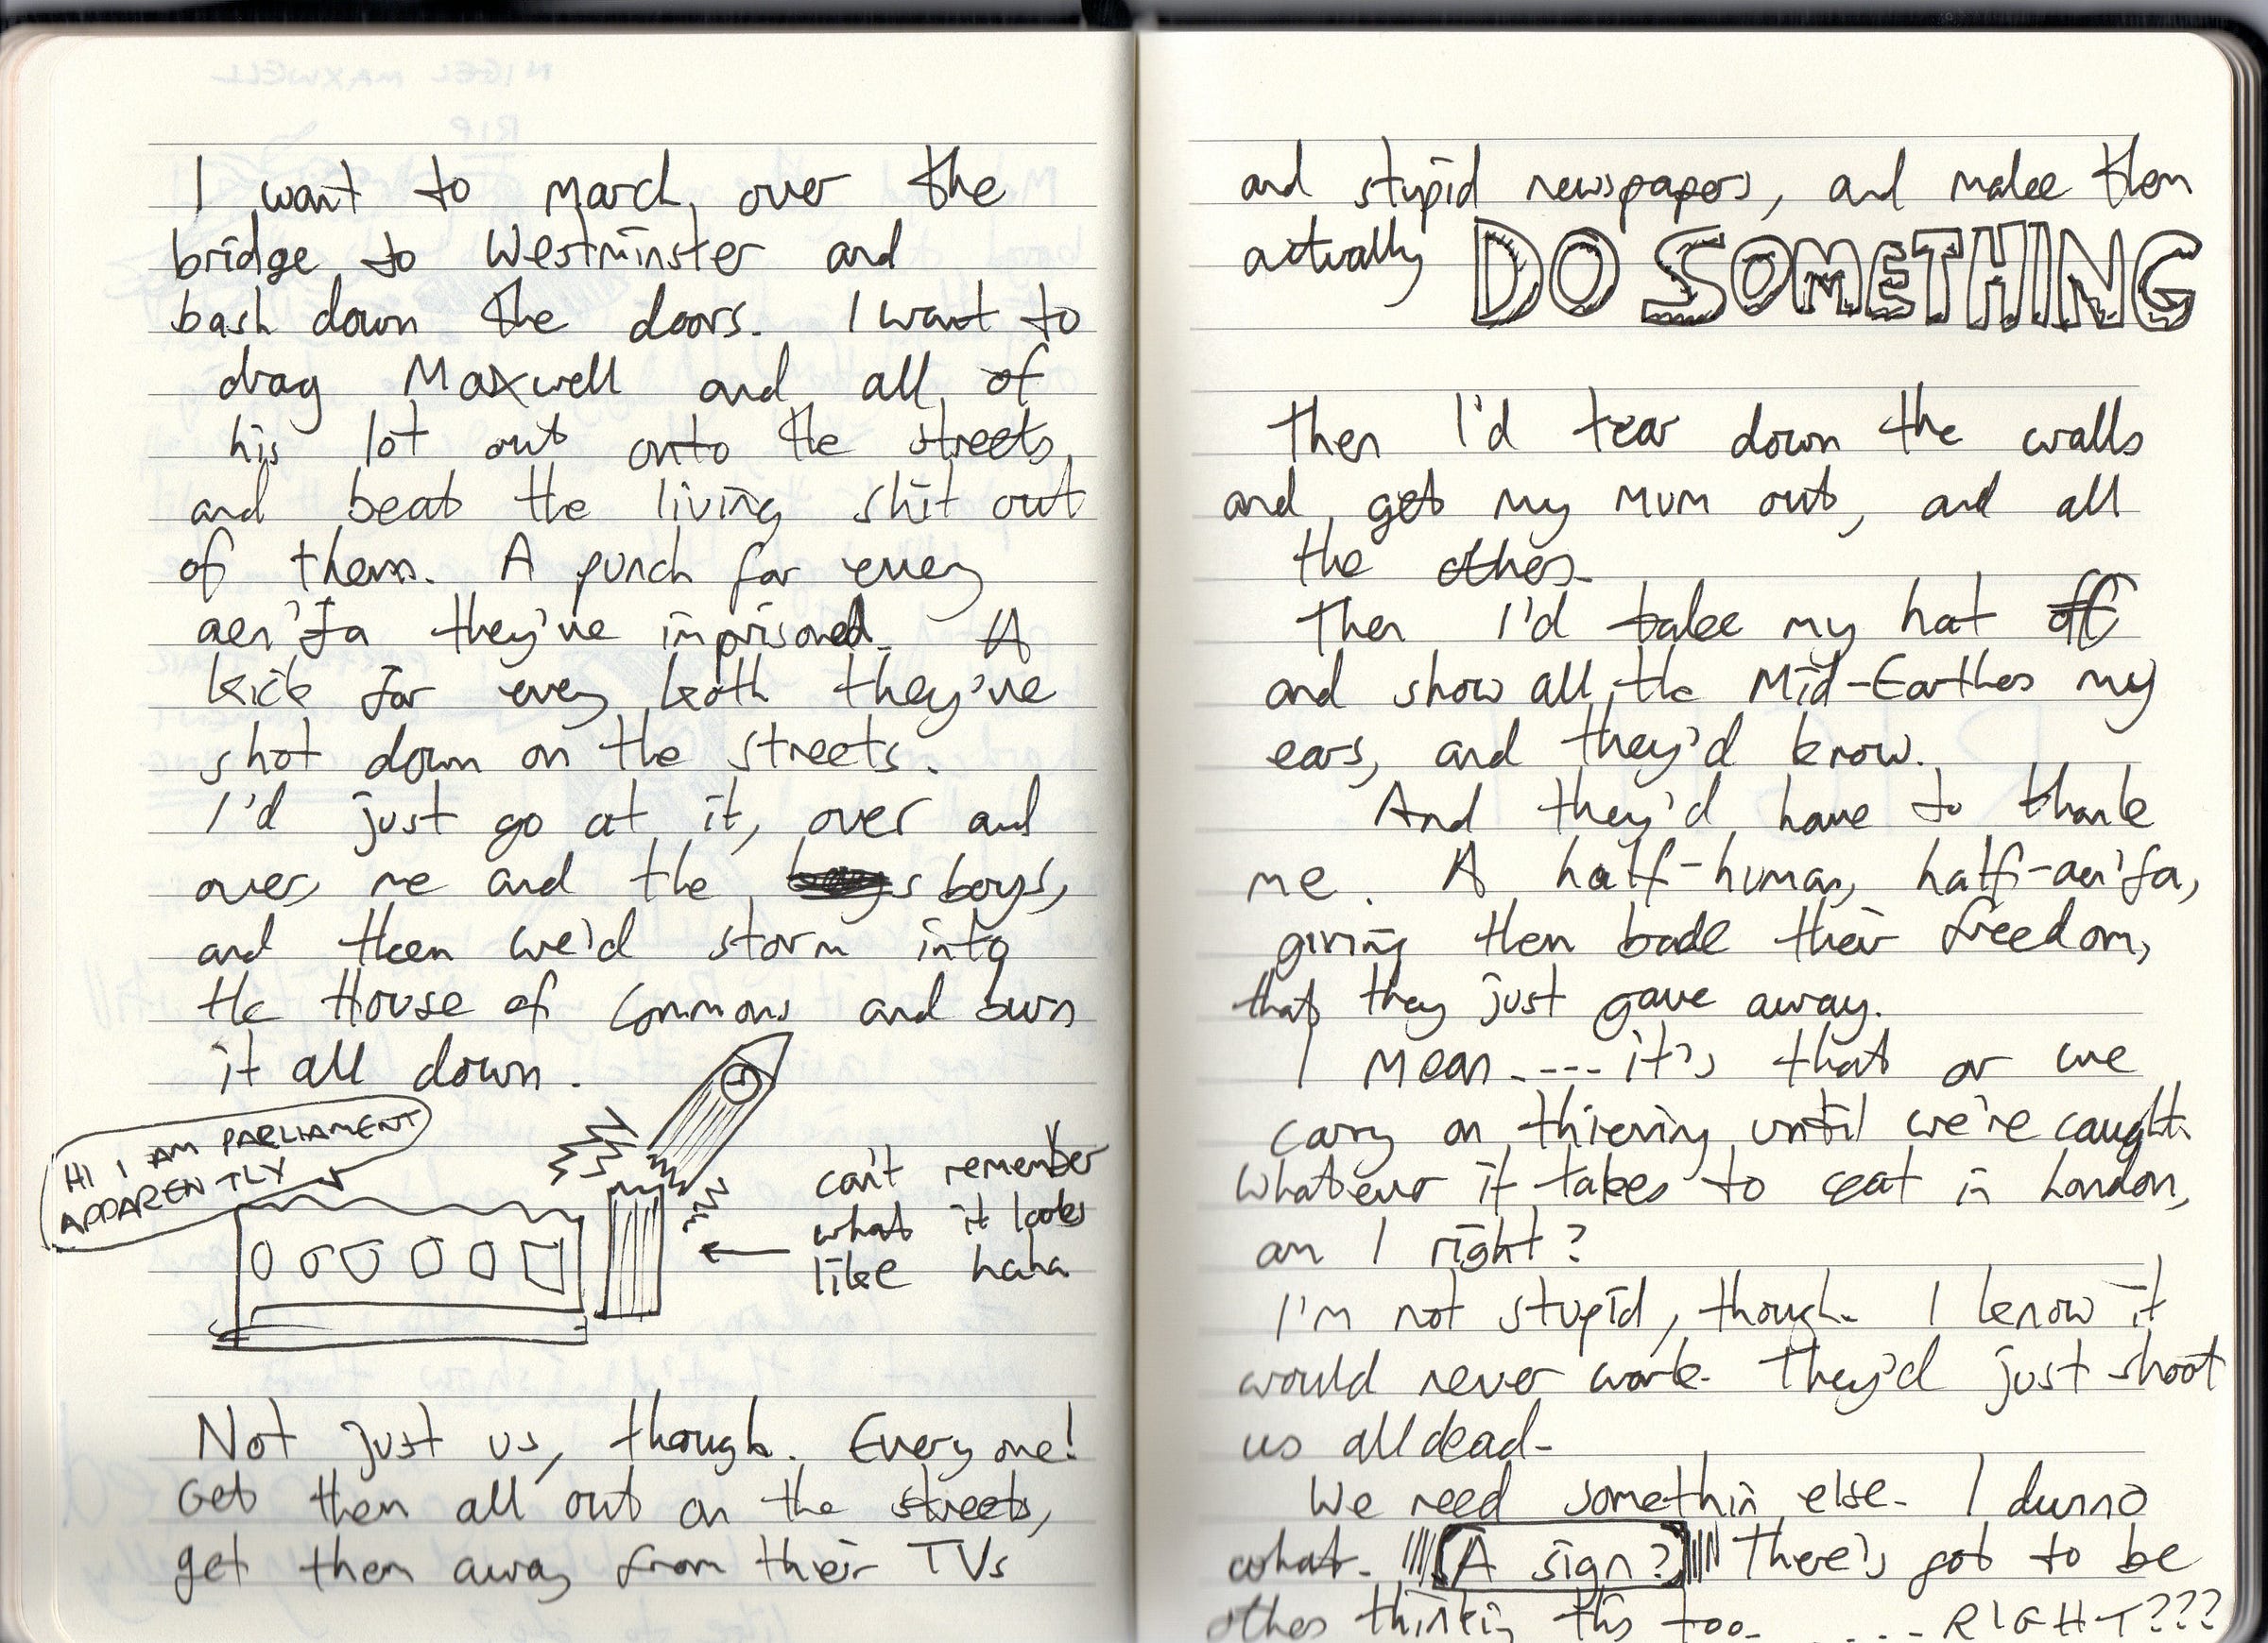 I want to march over the
bridge to Westminster and
bash down the doors. I want to
drag Maxwell and all of
his lot out onto the streets
and beat the living shit out
of them. A punch for every
aen'fa they've imprisoned. A
kick for every koth they've
shot down on the streets.
I'd just go at it, over and
over, me and the boys,
and then we'd storm into
the House of Commons and burn
it all down.
HI I AM PARLIAMENT
APPARENTLY
can't remember
what it looks
like haha
Not just us, though. Everyone!
Get them all out on the streets,
get them away from their TVs
and stupid newspapers, and make them
actually DO SOMETHING
Then I'd tear down the walls
and get my mum out, and all
the others.
Then I'd take my hat off
and show all the Mid-Earthers my
ears, and they'd know.
And they'd have to thank
me. A half-human, half-aen'fa,
giving them back their freedom,
that they just gave away.
I mean..... it's that or we
carry on thieving until we're caught.
Whatever it takes to eat in London,
am I right?
I'm not stupid, though. I know it
would never work. They'd just shoot
us all dead.
We need somethin else. I dunno
what. A sign? There's got to be
others thinking this too..... RIGHT???
NIGEL MAXWELL
RIP